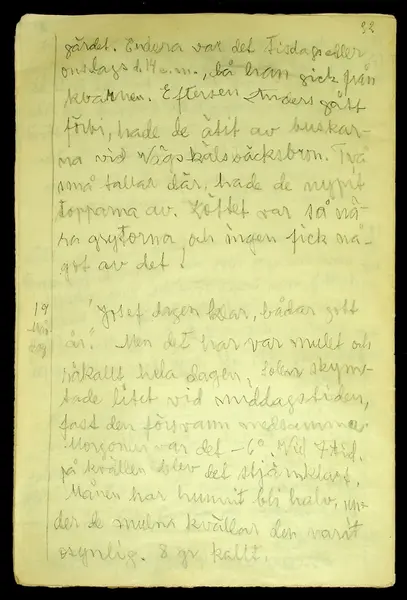 32
gärdet. Endera var det Tisdags eller
onsdags d. 14 e.m., då han gick från
kvarnen. Eftersen Anders gått
förbi, hade de ätit av buskar-
na vid Vägskälsbäcksbron. Två
små tallar där, hade de nypit
topparna av. Köttet var så nä-
ra grytorna, och ingen fick nå-
got av det!
19
"Josef dagen klar, bådar gott
år." Men det har var mulet och
råkallt hela dagen, solen skym-
tade litet vid middagstiden,
fast den försvann
Morgonen var det -6°. Vid 7 tid.
på kvällen blev det stjärnklart.
Månen har hunnit bli halv, un-
der de mulna kvällar den varit
osynlig. 8 gr. kallt.